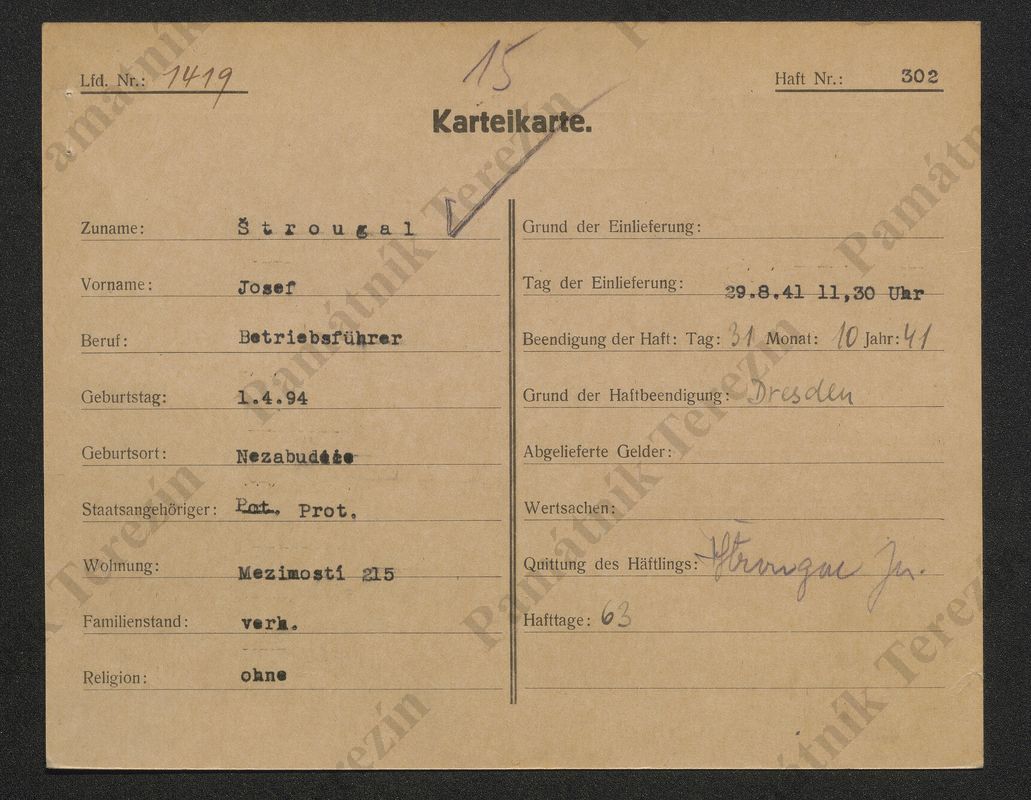 Lfd. Nr.: 1419
15
Haft Nr.: 302
Karteikarte.
Zuname: Štrougal
Vorname: Josef
Beruf: Betriebsführer
Geburtstag: 1.4.94
Geburtsort:
Staatsangehöriger: Pot. Prot.
Wohnung: Mezimostí 215
Familienstand: verh.
Religion: ohne
Grund der Einlieferung:
Tag der Einlieferung: 29.8.41 11,30 Uhr
Beendigung der Haft: Tag: 31 Monat: 10 Jahr: 41
Grund der Haftbeendigung: Dresden
Abgelieferte Gelder:
Wertsachen:
Quittung des Häftlings:
Hafttage: 63
Památník Terezín